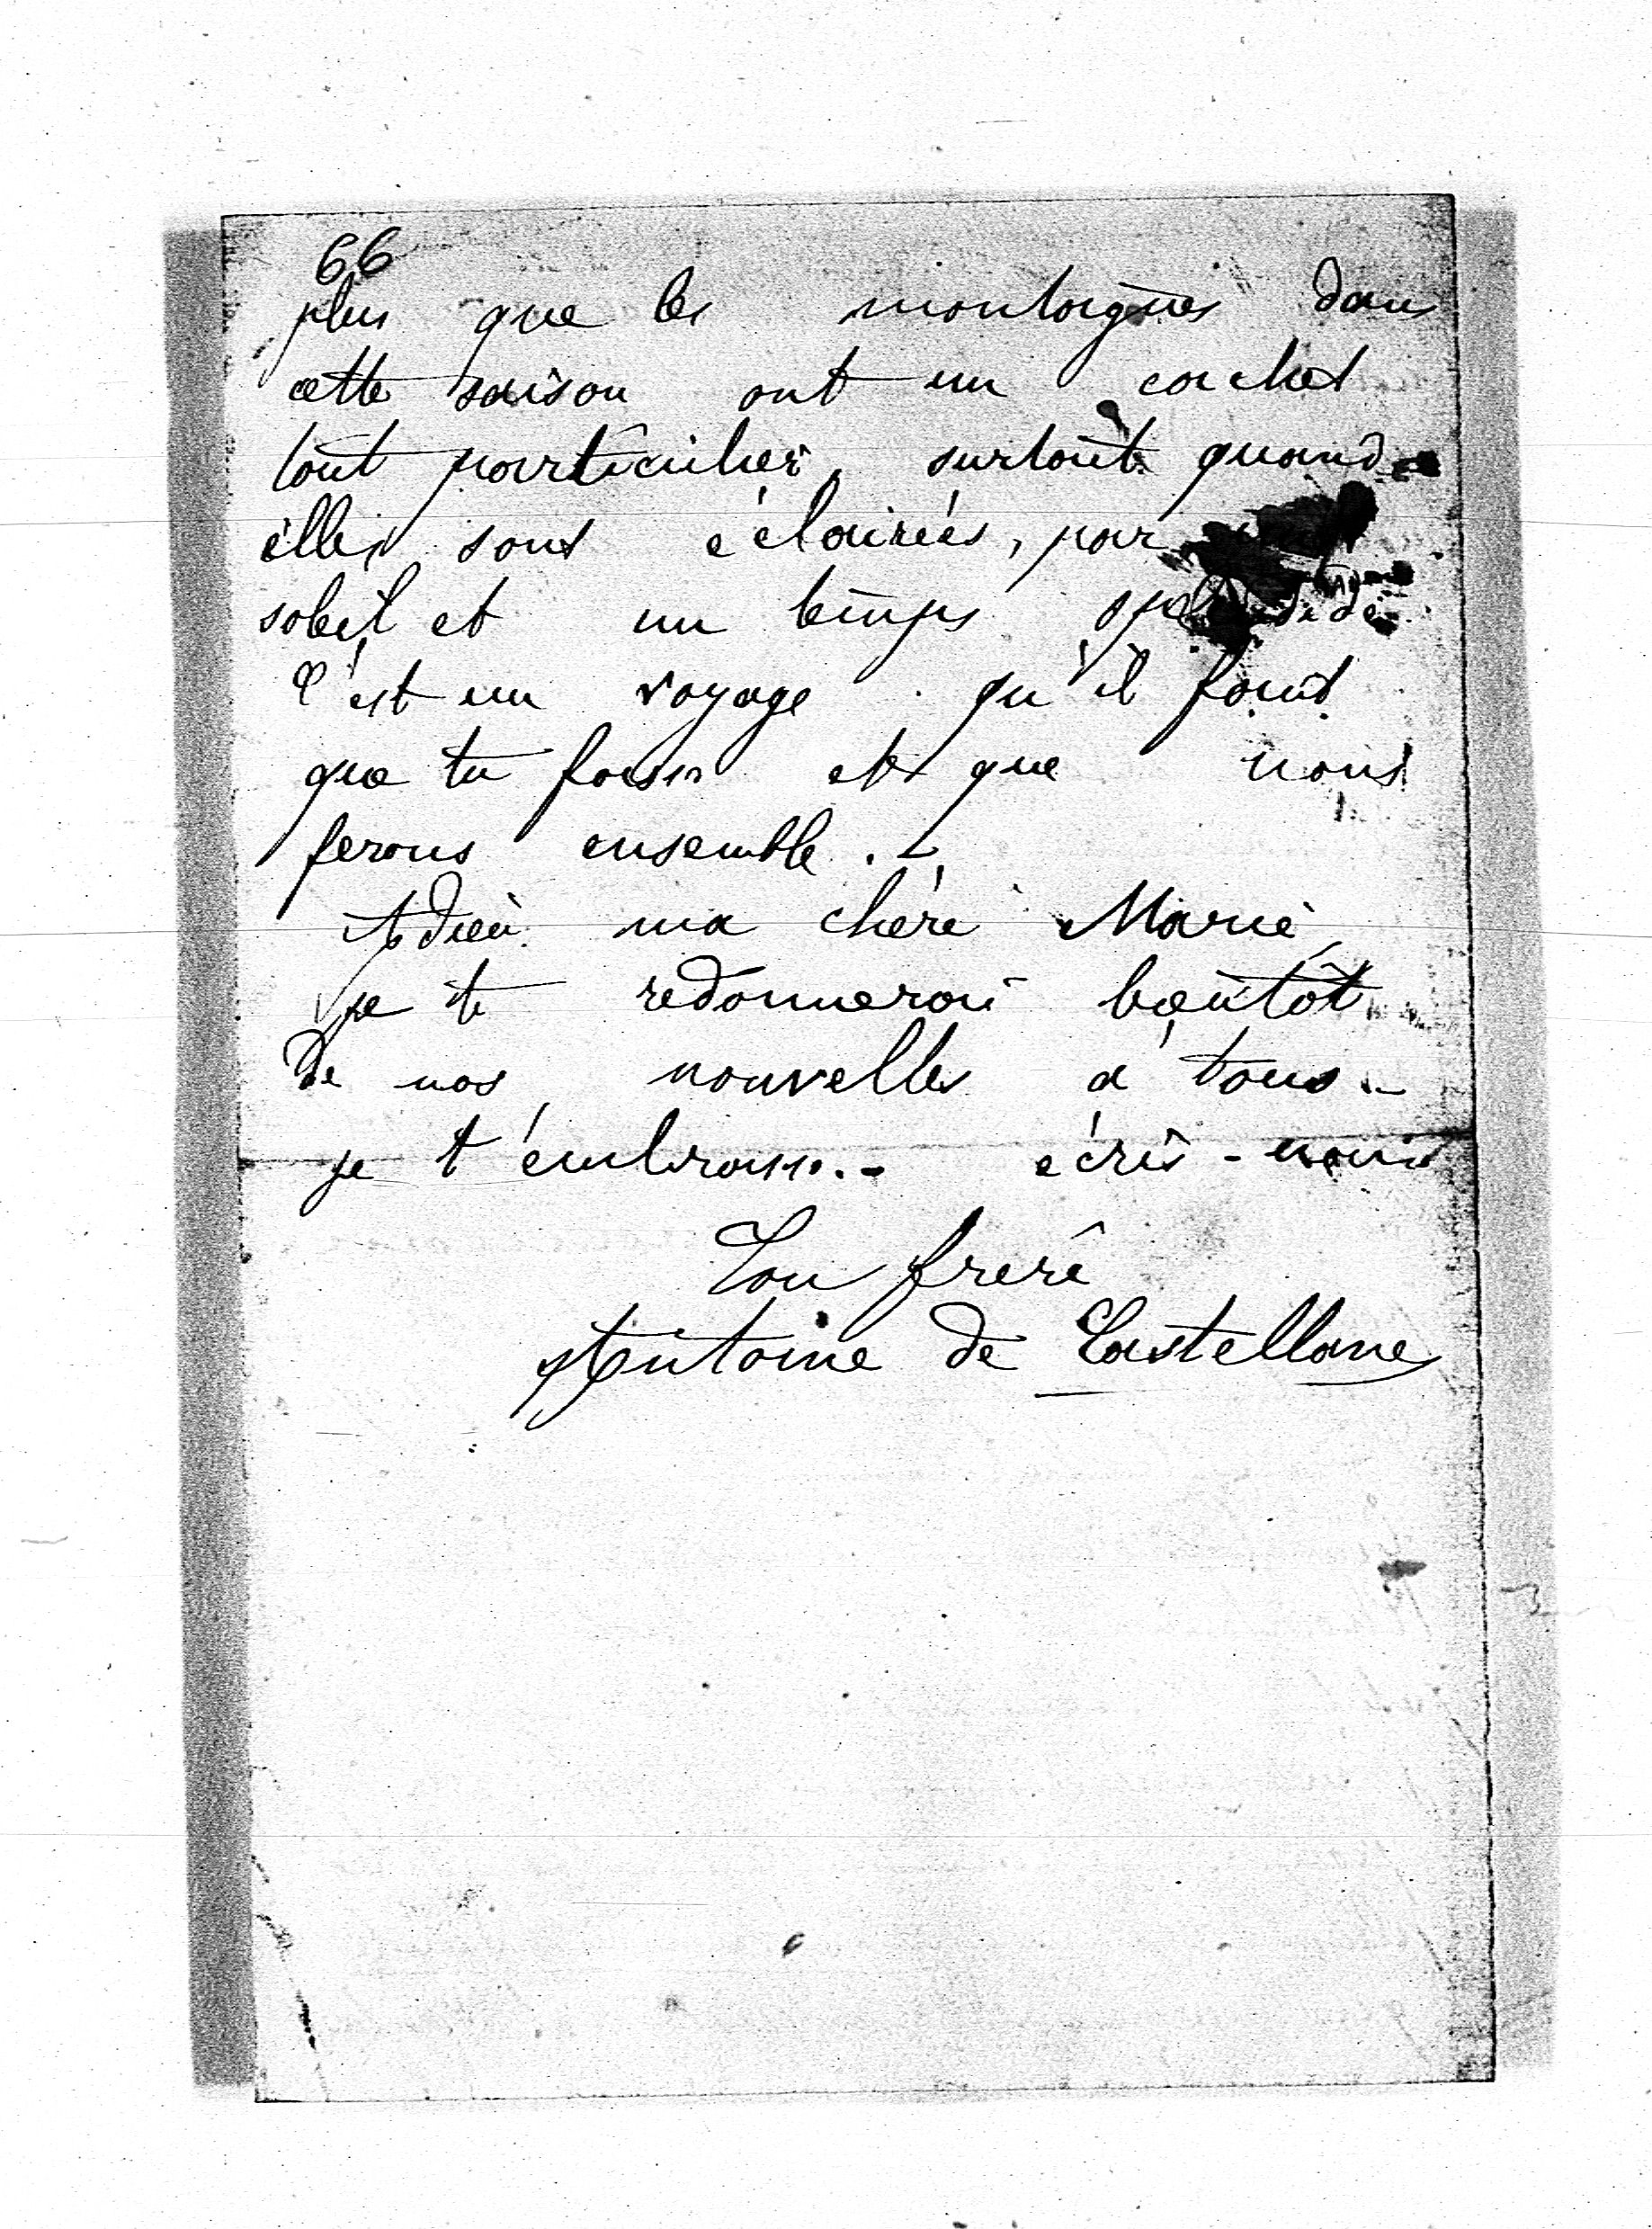 66
plus que les montagnes dans
cette saison ont un cachet
tout particulier, surtout quand
elles sont éclairées, par
soleil et un temps splendide
C'est un voyage qu'il faut
que tu fasses et que nous
ferons ensemble. -
Adieu ma chère Marie,
je te redonnerai bientôt
de nos nouvelles à tous. -
je t'embrasse. - écris-nous
Ton frère
Antoine de Castellane